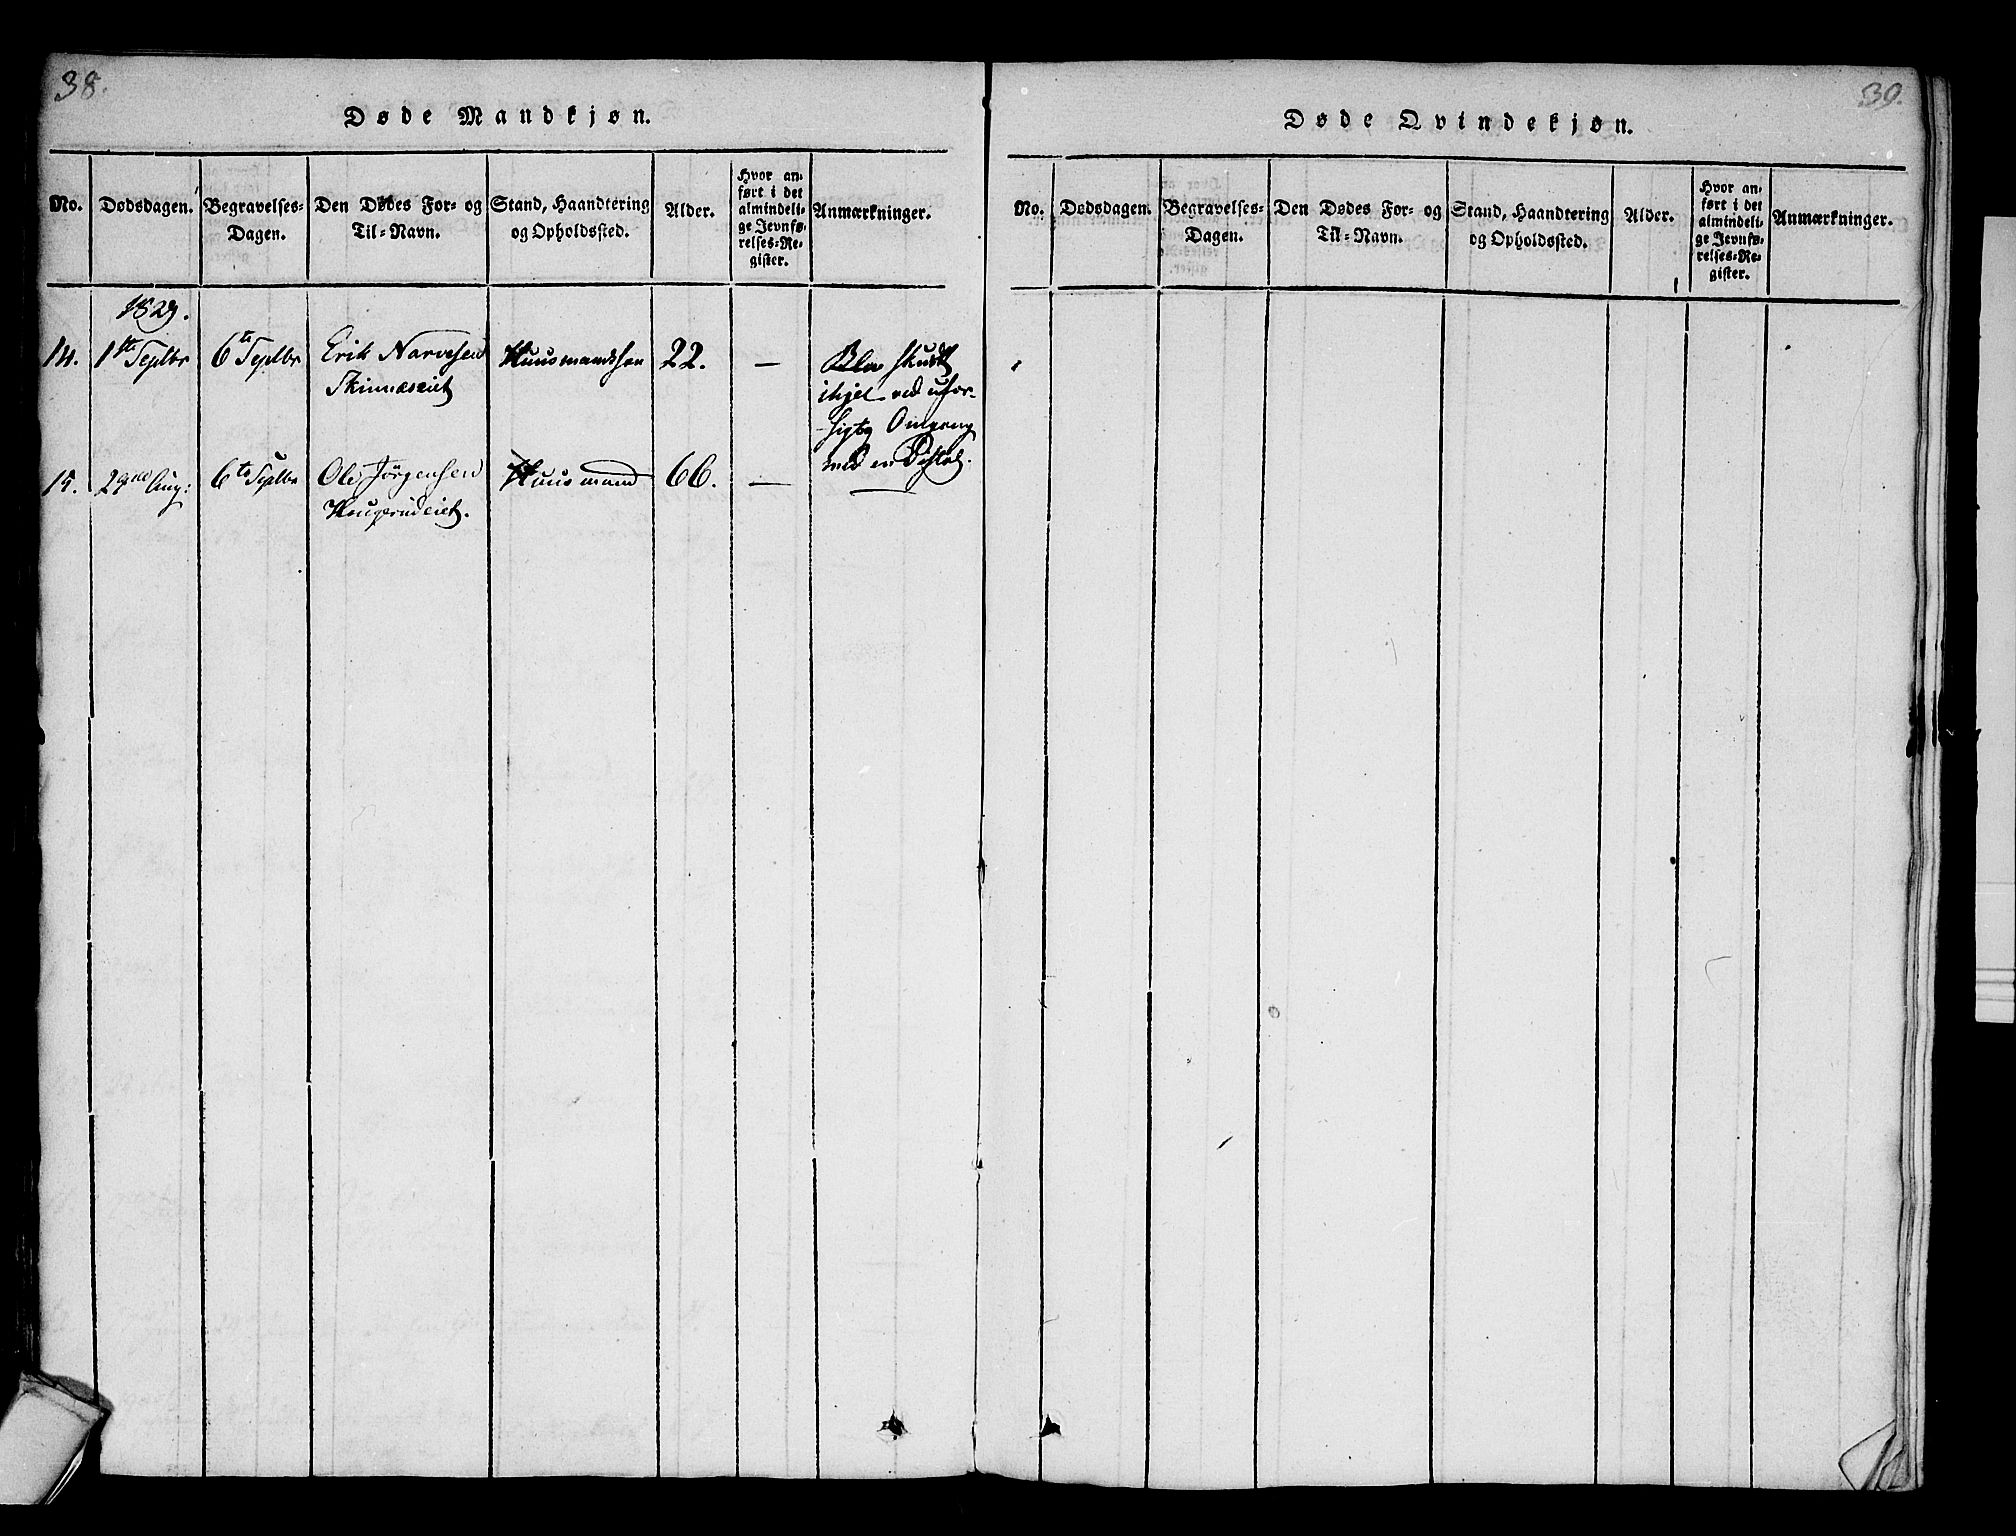 38.
Døde Mandkjøn.
No. Dødsdagen. Begravelses-Dagen. Den Dødes For- og Til-Navn. Stand, Haandtering og Opholdssted. Alder. Hvor anført i det almindelige Jevnførelses-Register. Anmærkninger.
1829.
14. 1ste Septbr 6te Septbr Erik Narvesen Huusmandssøn 22. — Blev skudt
Skinnæseiet ihjel ved ufor-
sigtig Omgang
med en Pistol.
15. 29de Aug: 6te Septbr Ole Jörgensen Huusmand 66. — —
Haugerudeiet.
39.
Døde Qvindekjøn.
No. Dødsdagen. Begravelses-Dagen. Den Dødes For- og Til-Navn. Stand, Haandtering og Opholdssted. Alder. Hvor anført i det almindelige Jevnførelses-Register. Anmærkninger.